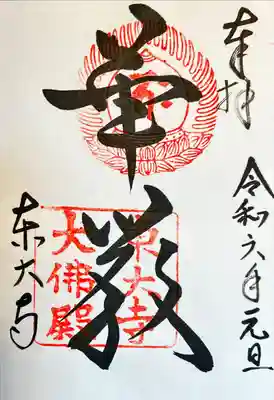 奉拝
令和六年元旦
華厳
東大寺
東大寺
大佛殿